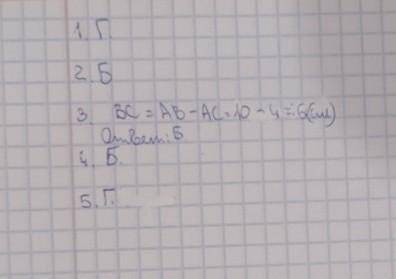 1. Г
2. Б
3. BC = AB - AC = 10 - 4 = 6(см)
Ответ: Б
4. Б.
5. Г.